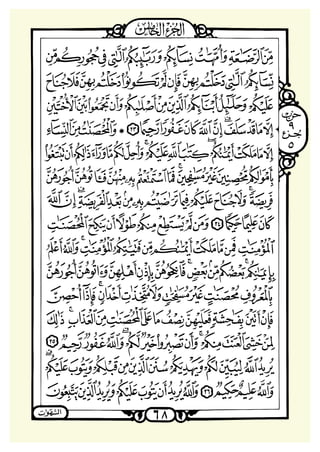 الجزء الخامس
مِّنَ ٱلرَّضَٰعَةِ وَأُمَّهَٰتُ نِسَآئِكُمْ وَرَبَٰٓئِبُكُمُ ٱلَّٰتِى فِى حُجُورِكُم مِّن
نِّسَآئِكُمُ ٱلَّٰتِى دَخَلْتُم بِهِنَّ فَإِن لَّمْ تَكُونُوا۟ دَخَلْتُم بِهِنَّ فَلَا جُنَاحَ
عَلَيْكُمْ وَحَلَٰٓئِلُ أَبْنَآئِكُمُ ٱلَّذِينَ مِنْ أَصْلَٰبِكُمْ وَأَن تَجْمَعُوا۟ بَيْنَ ٱلْأُخْتَيْنِ
إِلَّا مَا قَدْ سَلَفَ إِنَّ ٱللَّهَ كَانَ غَفُورًا رَّحِيمًا ٢٣ وَٱلْمُحْصَنَٰتُ مِنَ ٱلنِّسَآءِ
إِلَّا مَا مَلَكَتْ أَيْمَٰنُكُمْ كِتَٰبَ ٱللَّهِ عَلَيْكُمْ وَأُحِلَّ لَكُم مَّا وَرَآءَ ذَٰلِكُمْ أَن تَبْتَغُوا۟
بِأَمْوَٰلِكُم مُّحْصِنِينَ غَيْرَ مُسَٰفِحِينَ فَمَا ٱسْتَمْتَعْتُم بِهِۦ مِنْهُنَّ فَـَٔاتُوهُنَّ أُجُورَهُنَّ
فَرِيضَةً وَلَا جُنَاحَ عَلَيْكُمْ فِيمَا تَرَٰضَيْتُم بِهِۦ مِنۢ بَعْدِ ٱلْفَرِيضَةِ إِنَّ ٱللَّهَ
كَانَ عَلِيمًا حَكِيمًا ٢٤ وَمَن لَّمْ يَسْتَطِعْ مِنكُمْ طَوْلًا أَن يَنكِحَ ٱلْمُحْصَنَٰتِ
ٱلْمُؤْمِنَٰتِ فَمِن مَّا مَلَكَتْ أَيْمَٰنُكُم مِّن فَتَيَٰتِكُمُ ٱلْمُؤْمِنَٰتِ وَٱللَّهُ أَعْلَمُ
بِإِيمَٰنِكُم بَعْضُكُم مِّنۢ بَعْضٍ فَٱنكِحُوهُنَّ بِإِذْنِ أَهْلِهِنَّ وَءَاتُوهُنَّ أُجُورَهُنَّ
بِٱلْمَعْرُوفِ مُحْصَنَٰتٍ غَيْرَ مُسَٰفِحَٰتٍ وَلَا مُتَّخِذَٰتِ أَخْدَانٍ فَإِذَآ أُحْصِنَّ
فَإِنْ أَتَيْنَ بِفَٰحِشَةٍ فَعَلَيْهِنَّ نِصْفُ مَا عَلَى ٱلْمُحْصَنَٰتِ مِنَ ٱلْعَذَابِ ذَٰلِكَ
لِمَنْ خَشِىَ ٱلْعَنَتَ مِنكُمْ وَأَن تَصْبِرُوا۟ خَيْرٌ لَّكُمْ وَٱللَّهُ غَفُورٌ رَّحِيمٌ ٢٥
يُرِيدُ ٱللَّهُ لِيُبَيِّنَ لَكُمْ وَيَهْدِيَكُمْ سُنَنَ ٱلَّذِينَ مِن قَبْلِكُمْ وَيَتُوبَ عَلَيْكُمْ
وَٱللَّهُ عَلِيمٌ حَكِيمٌ ٢٦ وَٱللَّهُ يُرِيدُ أَن يَتُوبَ عَلَيْكُمْ وَيُرِيدُ ٱلَّذِينَ يَتَّبِعُونَ
حزب
٩
جزء
٥
٦٨
الشهوات